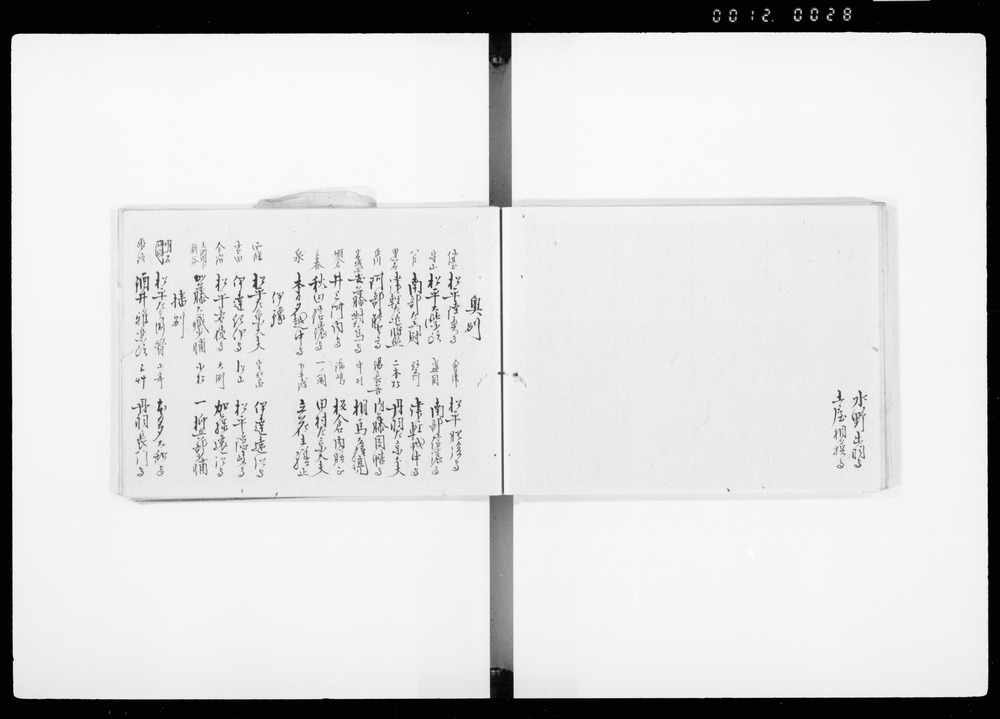 0012 0028
水野出羽守
土屋相摸守
奥州
仙臺 松平陸奥守 會津 松平肥後守
松平大學頭 盛岡 南部信濃守
八戸 南部左エ門尉 弘前 津軽越中守
黒石 津軽左近将監 二本松 丹羽左京大夫
白川 阿部能登守 湯長谷 内藤因幡守
安藤對馬守 中村 相馬
井上河内守 福嶋 板倉内膳正
三春 秋田信濃守 一ノ関 田村左京大夫
泉 本多越中守 下手渡 立花主膳正
伊豫
西條 松平左京大夫 宇和嶋 伊達遠江守
吉田 伊達紀伊守 松山 松平隠岐守
今治 松平壱岐守 大洲 加藤遠江守
新谷 加藤大蔵少輔 小松 一柳兵部少輔
播州
明石 松平左兵衛督
姫路 酒井雅楽頭 三草 丹羽長門守